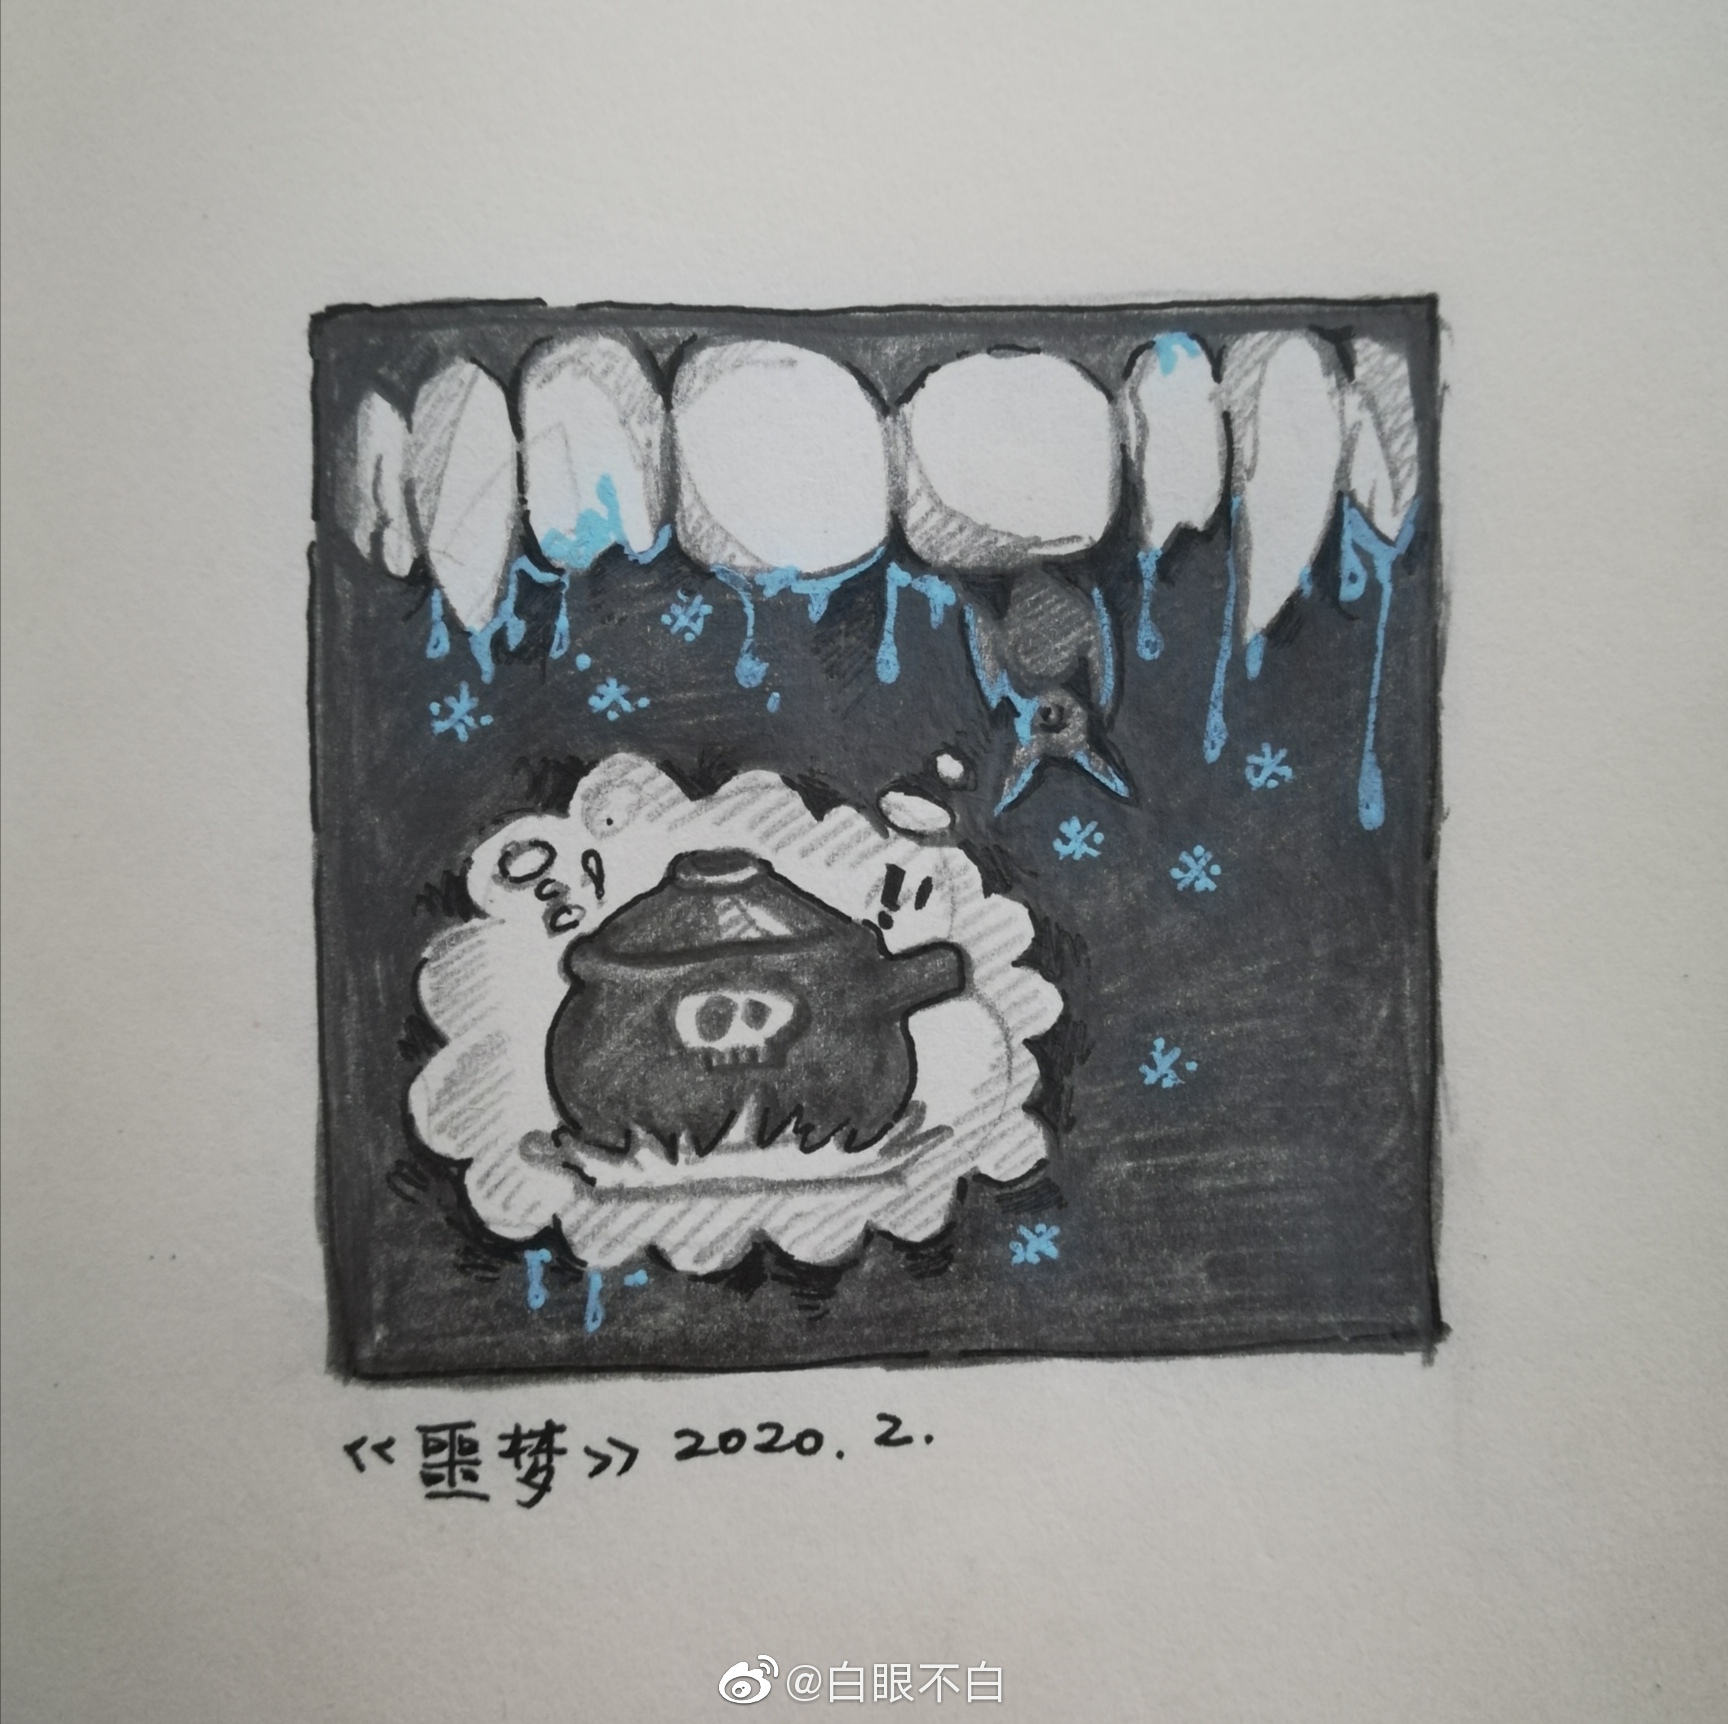 !!
《噩梦》 2020. 2.
@白眼不白